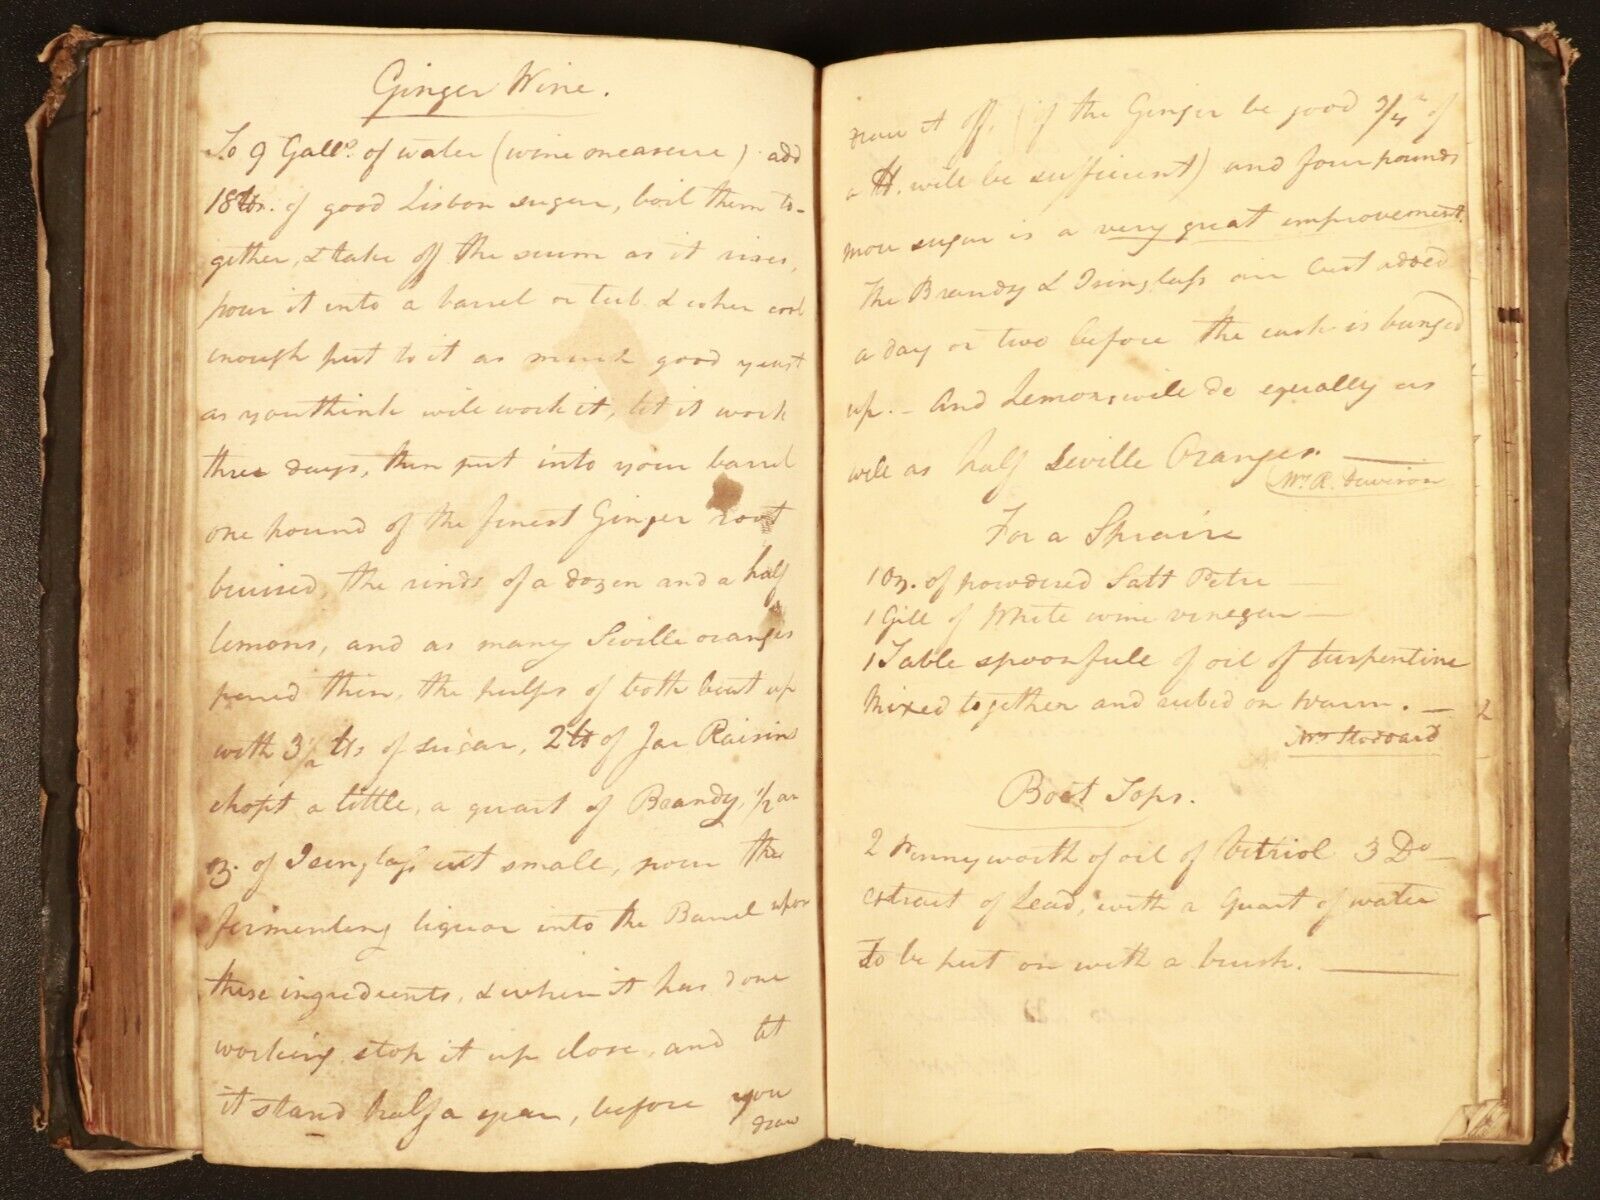 Ginger Wine.
To 9 Galls. of water (wine measure) add
18 lbs. of good Lisbon sugar, boil them to-
gether, & take off the scum as it rises,
pour it into a barrel or tub & when cool
enough put to it as much good yeast
as you think will work it, let it work
three days, then put into your barrel
one pound of the finest Ginger root
bruised, the rinds of a dozen and a half
lemons, and as many Seville oranges
pared thin, the pulps of both beat up
with 3 1/2 lbs of sugar, 2 lb of Jar Raisins
chopt a little, a quart of Brandy, 1/2 an
oz. of Isinglass cut small, pour the
fermenting liquor into the Barrel upon
these ingredients, & when it has done
working stop it up close, and let
it stand half a year, before you
draw
draw it off, (if the Ginger be good 3/4 of
a lb. will be sufficient) and four pounds
more sugar is a very great improvement.
The Brandy & Isinglass are best added
a day or two before the cask is bunged
up. – And Lemons, will do equally as
well as half Seville Oranges.
Mr. R. Davison
For a Sprain
1 Oz. of powdered Salt Petre
1 Gill of White wine vinegar
1 Table spoonfull of oil of turpentine
Mixed together and rubed on warm. –
Mrs Stoddard
Boot Tops.
2 Pennyworth of oil of Vitriol 3 Do
extract of Lead, with a Quart of water
To be put on with a brush.